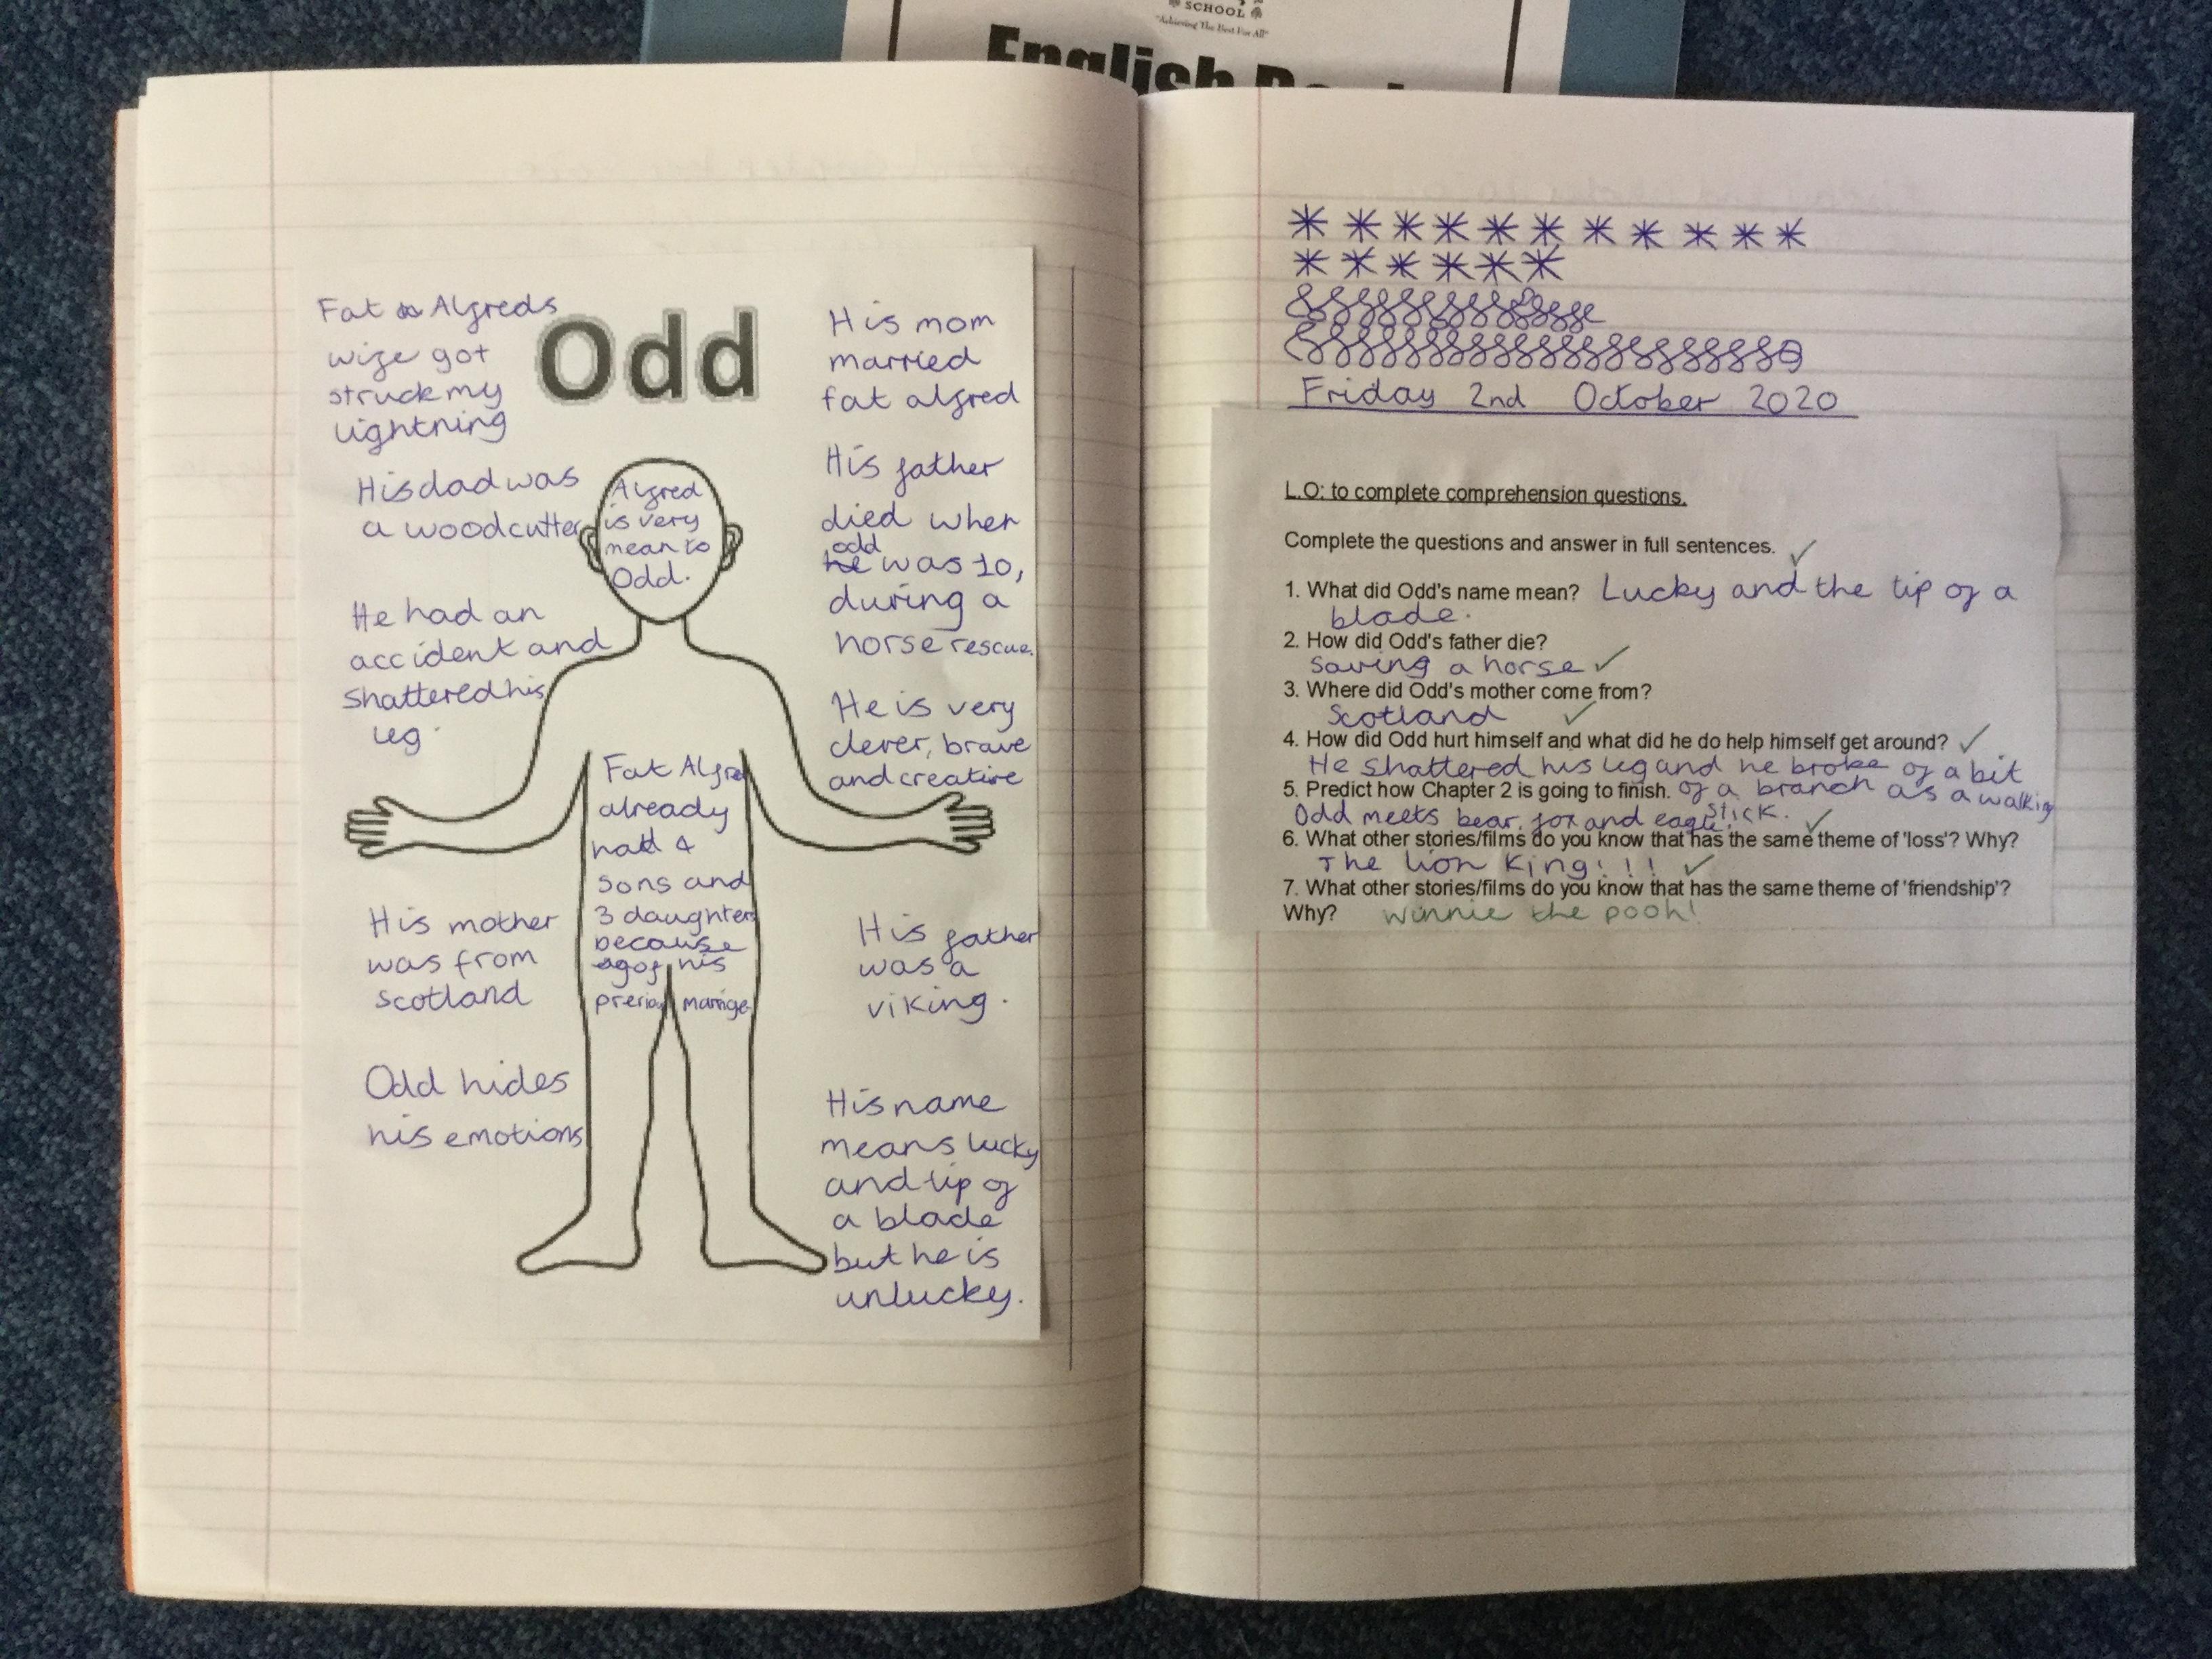 SCHOOL
"Achieving The Best For All"
English
Odd
Fat Alfreds
wife got
struck my
lightning
His dad was
a woodcutter
He had an
accident and
shattered his
leg.
His mother
was from
scotland
Odd hides
his emotions
Alfred
is very
mean to
Odd.
Fat Alfred
already
had 4
sons and
3 daughters
because
of his
marrige
His mom
married
fat alfred
His father
died when
odd
he was 10,
during a
horse rescue.
He is very
clever, brave
and creative
His father
was a
viking.
His name
means lucky
and tip of
a blade
but he is
unlucky.
Friday 2nd October 2020
L.O: to complete comprehension questions.
Complete the questions and answer in full sentences.
1. What did Odd's name mean? Lucky and the tip of a
blade.
2. How did Odd's father die?
Saving a horse
3. Where did Odd's mother come from?
Scotland
4. How did Odd hurt himself and what did he do help himself get around?
He shattered his leg and he broke of a bit
5. Predict how Chapter 2 is going to finish. of a branch as a walking
stick.
Odd meets bear, fox and eagle.
6. What other stories/films do you know that has the same theme of 'loss'? Why?
The lion King!!!
7. What other stories/films do you know that has the same theme of 'friendship'?
Why? Winnie the pooh!